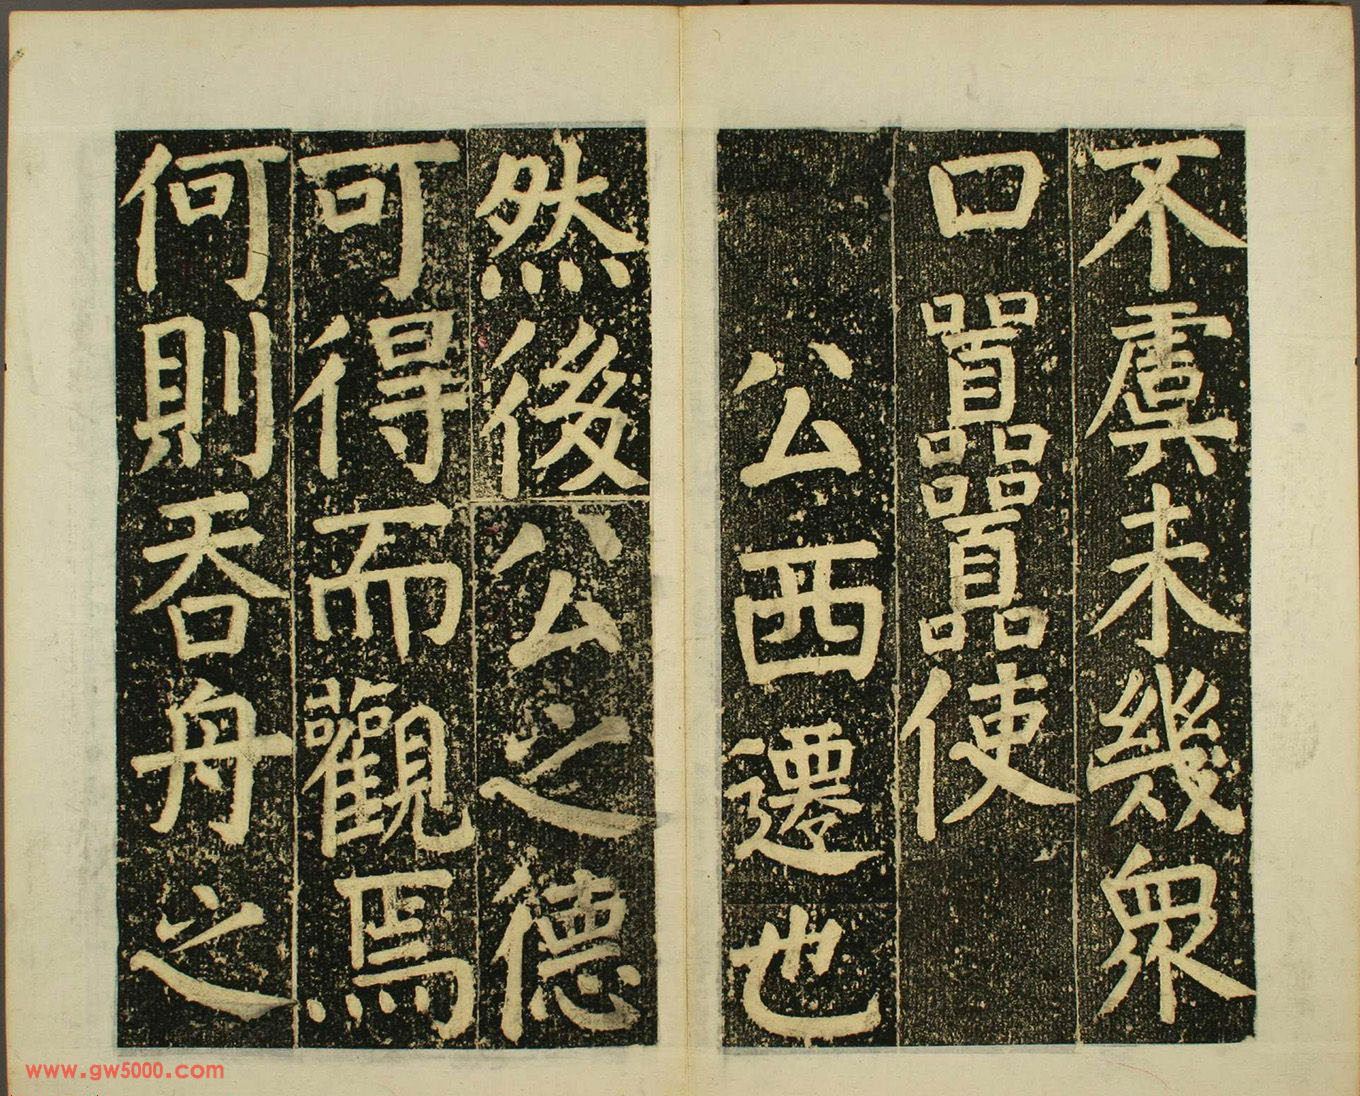 不虞未幾衆
口囂囂使
公西遷也
然後公之德
可得而觀焉
何則吞舟之
www.gw5000.com